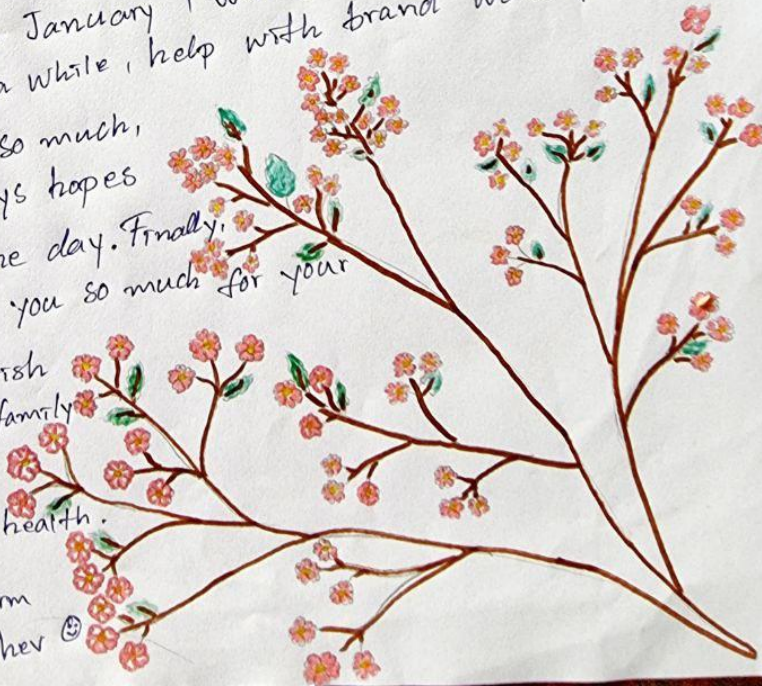 January
while, help with brand
so much,
hopes
day. Finally,
you so much for your
family
health.